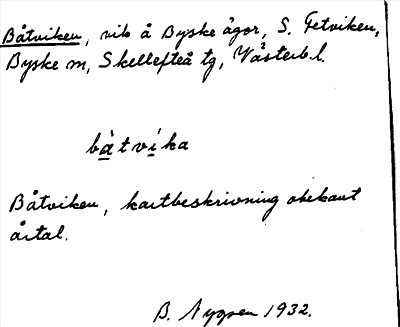 Båtviken, vik å Byske ägor, S. Fetviken,
Byske sn, Skellefteå tg, Västerb. l.
bàtvíka
Båtviken, kartbeskrivning obekant
årtal.
B. Nygren 1932.